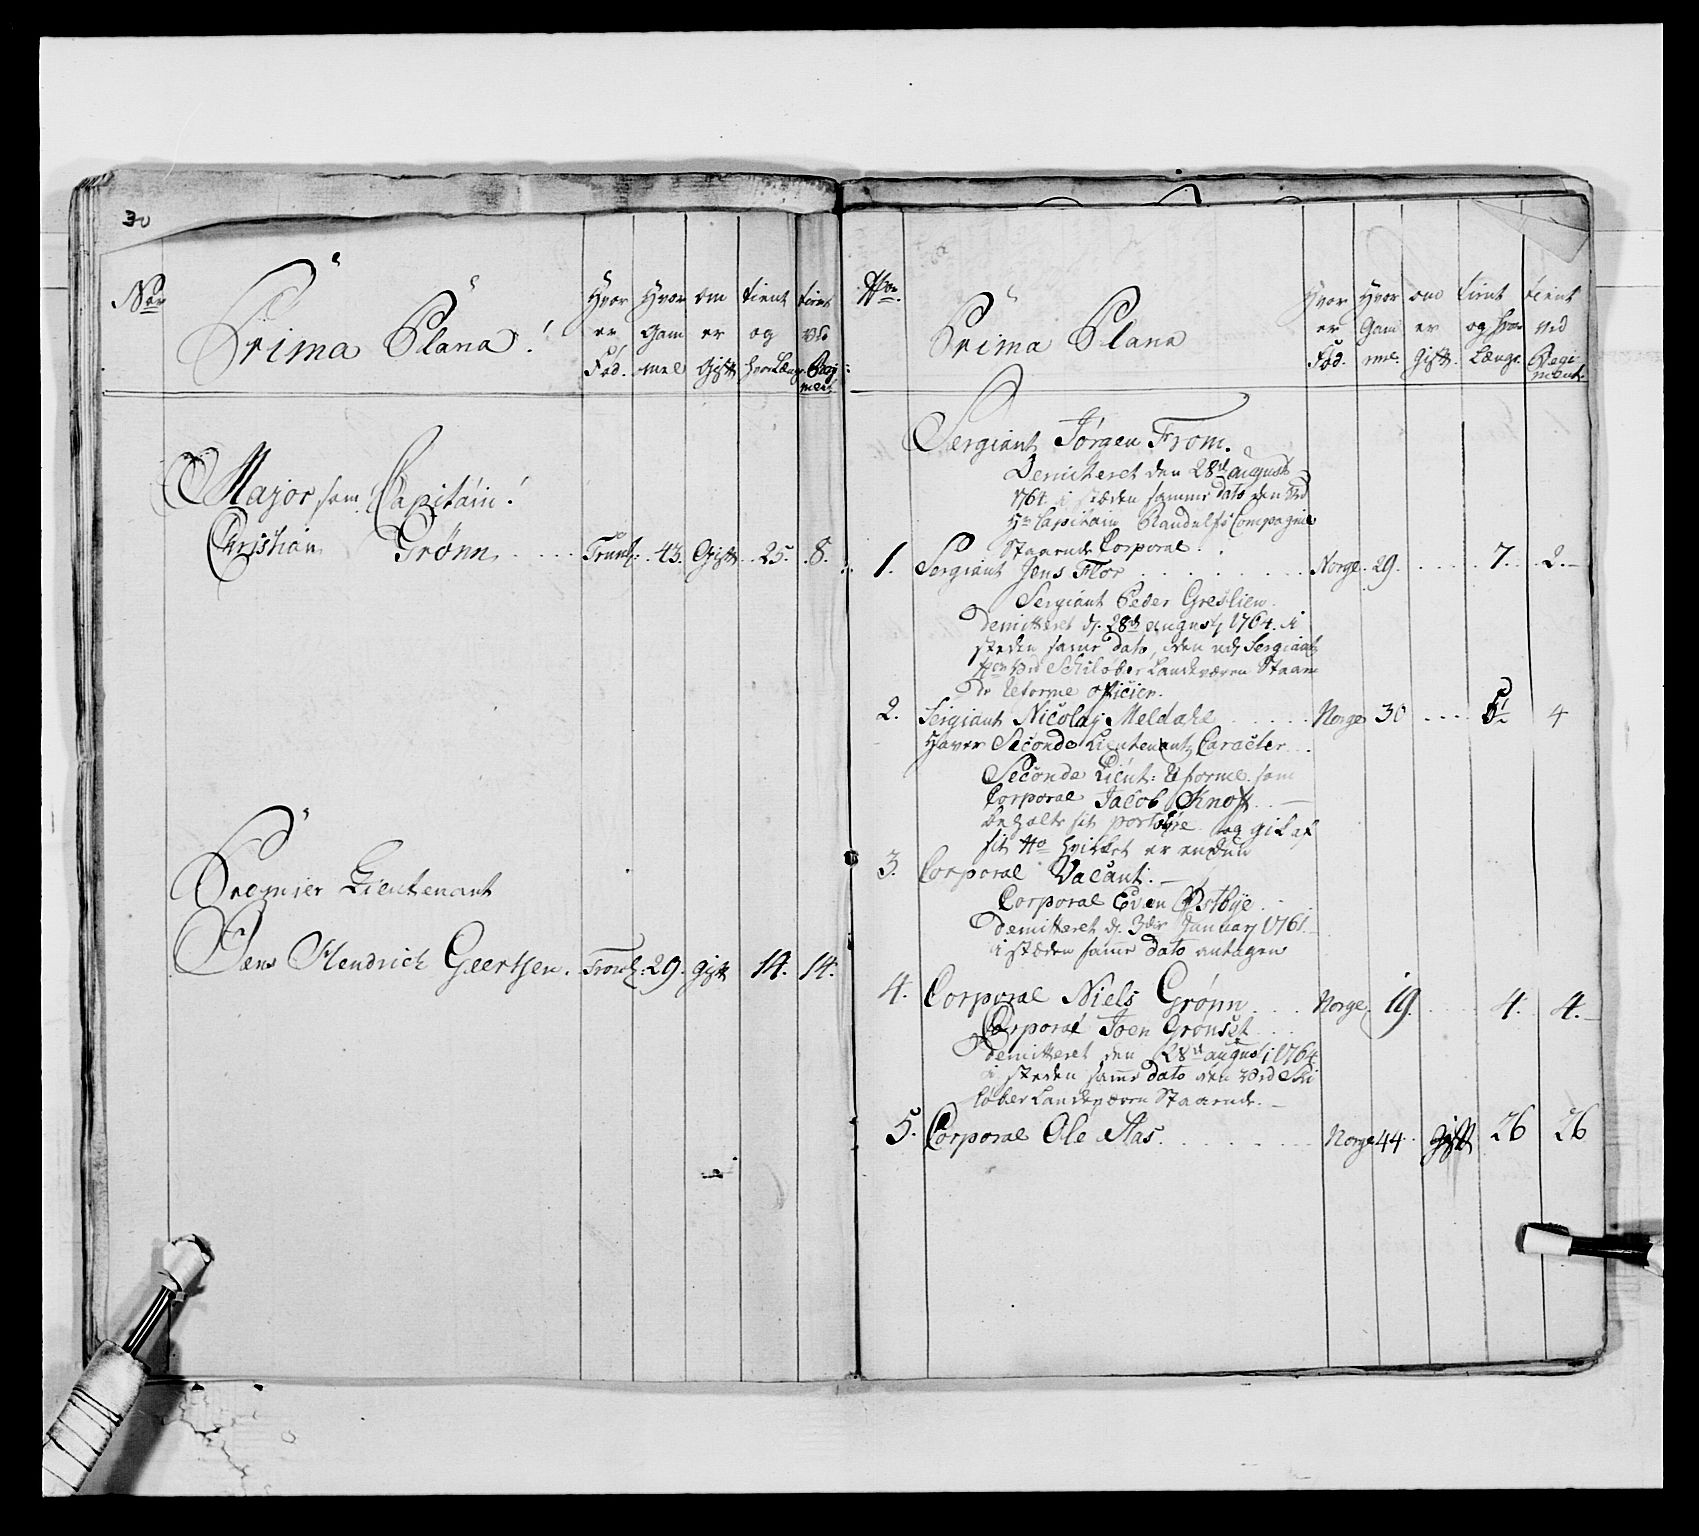 30
No
Prima Plana!
Hvor er Fød.
Hvor Gam mel
om er Gift
tient og hvor Længe
tient ved Regiment
Major som Capitain!
Christian Grønn Trondh: 43. Gift 25. 8.
Premier Lieutenant
Hendrich Geertsen. Trondh: 29. gift 14. 14.
No
Prima Plana
Hvor er Fød.
Hvor Gam mel.
om er Gift.
tient og hvor Længe.
tient ved Regiment.
Sergiant Jørgen From.
Demitteret den 28de august
1764 i stæden samme dato den ved
Hr Capitain Randulfs Compagnie
Staaende Corporal.
1. Sergiant Jens Flor Norge. 29. 7. 2.
Sergiant Peder Greslien.
demitteret d. 28de august 1764. i
steden samme dato, den
Landeværen Staaen
de Reforme officier.
2. Sergiant Nicolay Meldahl Norge 30 4
Haver Seconde Lieutenants Caracter
Seconde Lieut: Reforme som
Corporal Jacob Knoff
sit og gik af
sit No hvilket er endnu
3. Corporal Vacant.
Corporal Even Østbye
demitteret d. 3die January 1761.
i stæden samme dato antagen
4. Corporal Niels Grønn Norge 19. 4. 4.
Corporal Joen Grønset
demitteret den 28de august 1764
i steden samme dato den ved Ski
løber Landeværen Staaende.
5. Corporal Ole Aas. Norge 44. gift 26 26